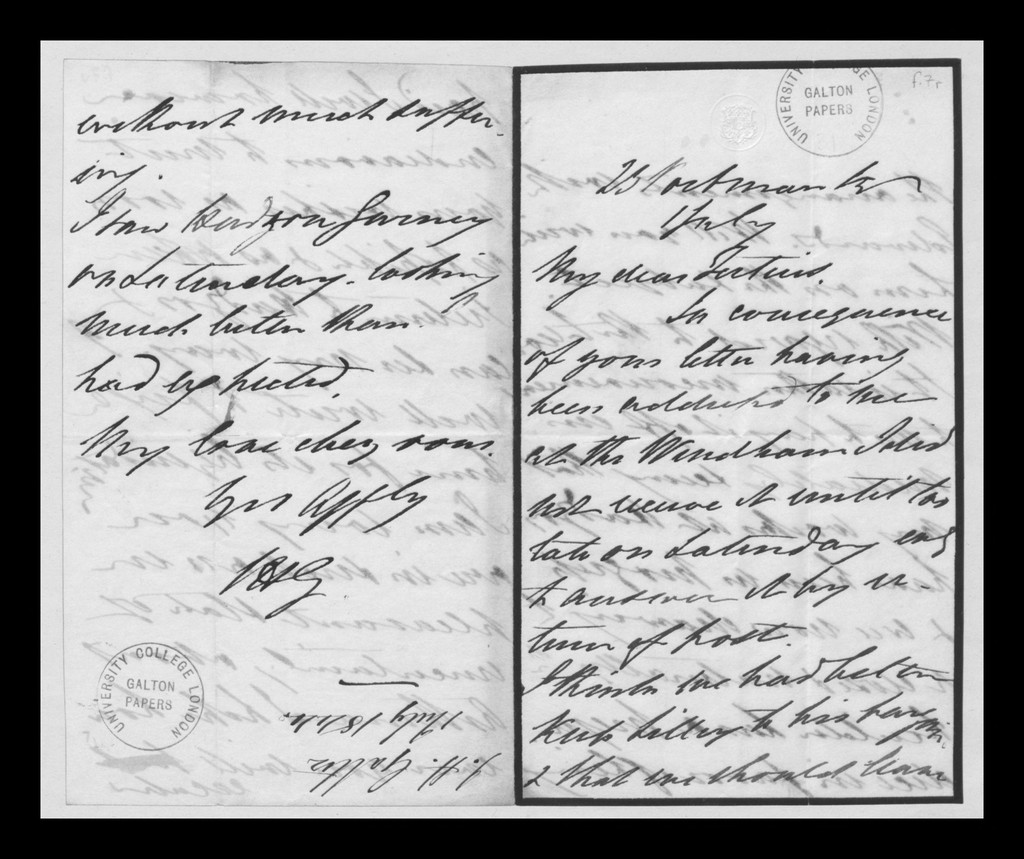 without much suffer-
ing.
I saw Hudson Gurney
on Saturday. looking
much better than
had expected.
My love chez vous.
Yrs Affly
UNIVERSITY COLLEGE LONDON
GALTON
PAPERS
July 18
J. H. Galton
UNIVERSITY COLLEGE LONDON
GALTON
PAPERS
f.7r
23 Portman
July
My dear Tertius.
In consequence
of your letter having
been addressed to me
at the Windham I did
not receive it until too
late on Saturday eng
to answer it by re-
turn of post.
I think we had better
keep to his bargain.
& that we should